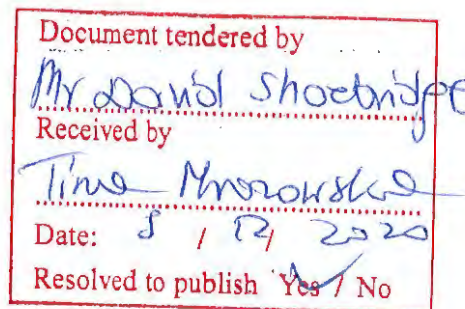 Document tendered by
Mr David Shoebridge
Received by
Tina Mrozowska
Date: 8 / 12 / 2020
Resolved to publish Yes / No